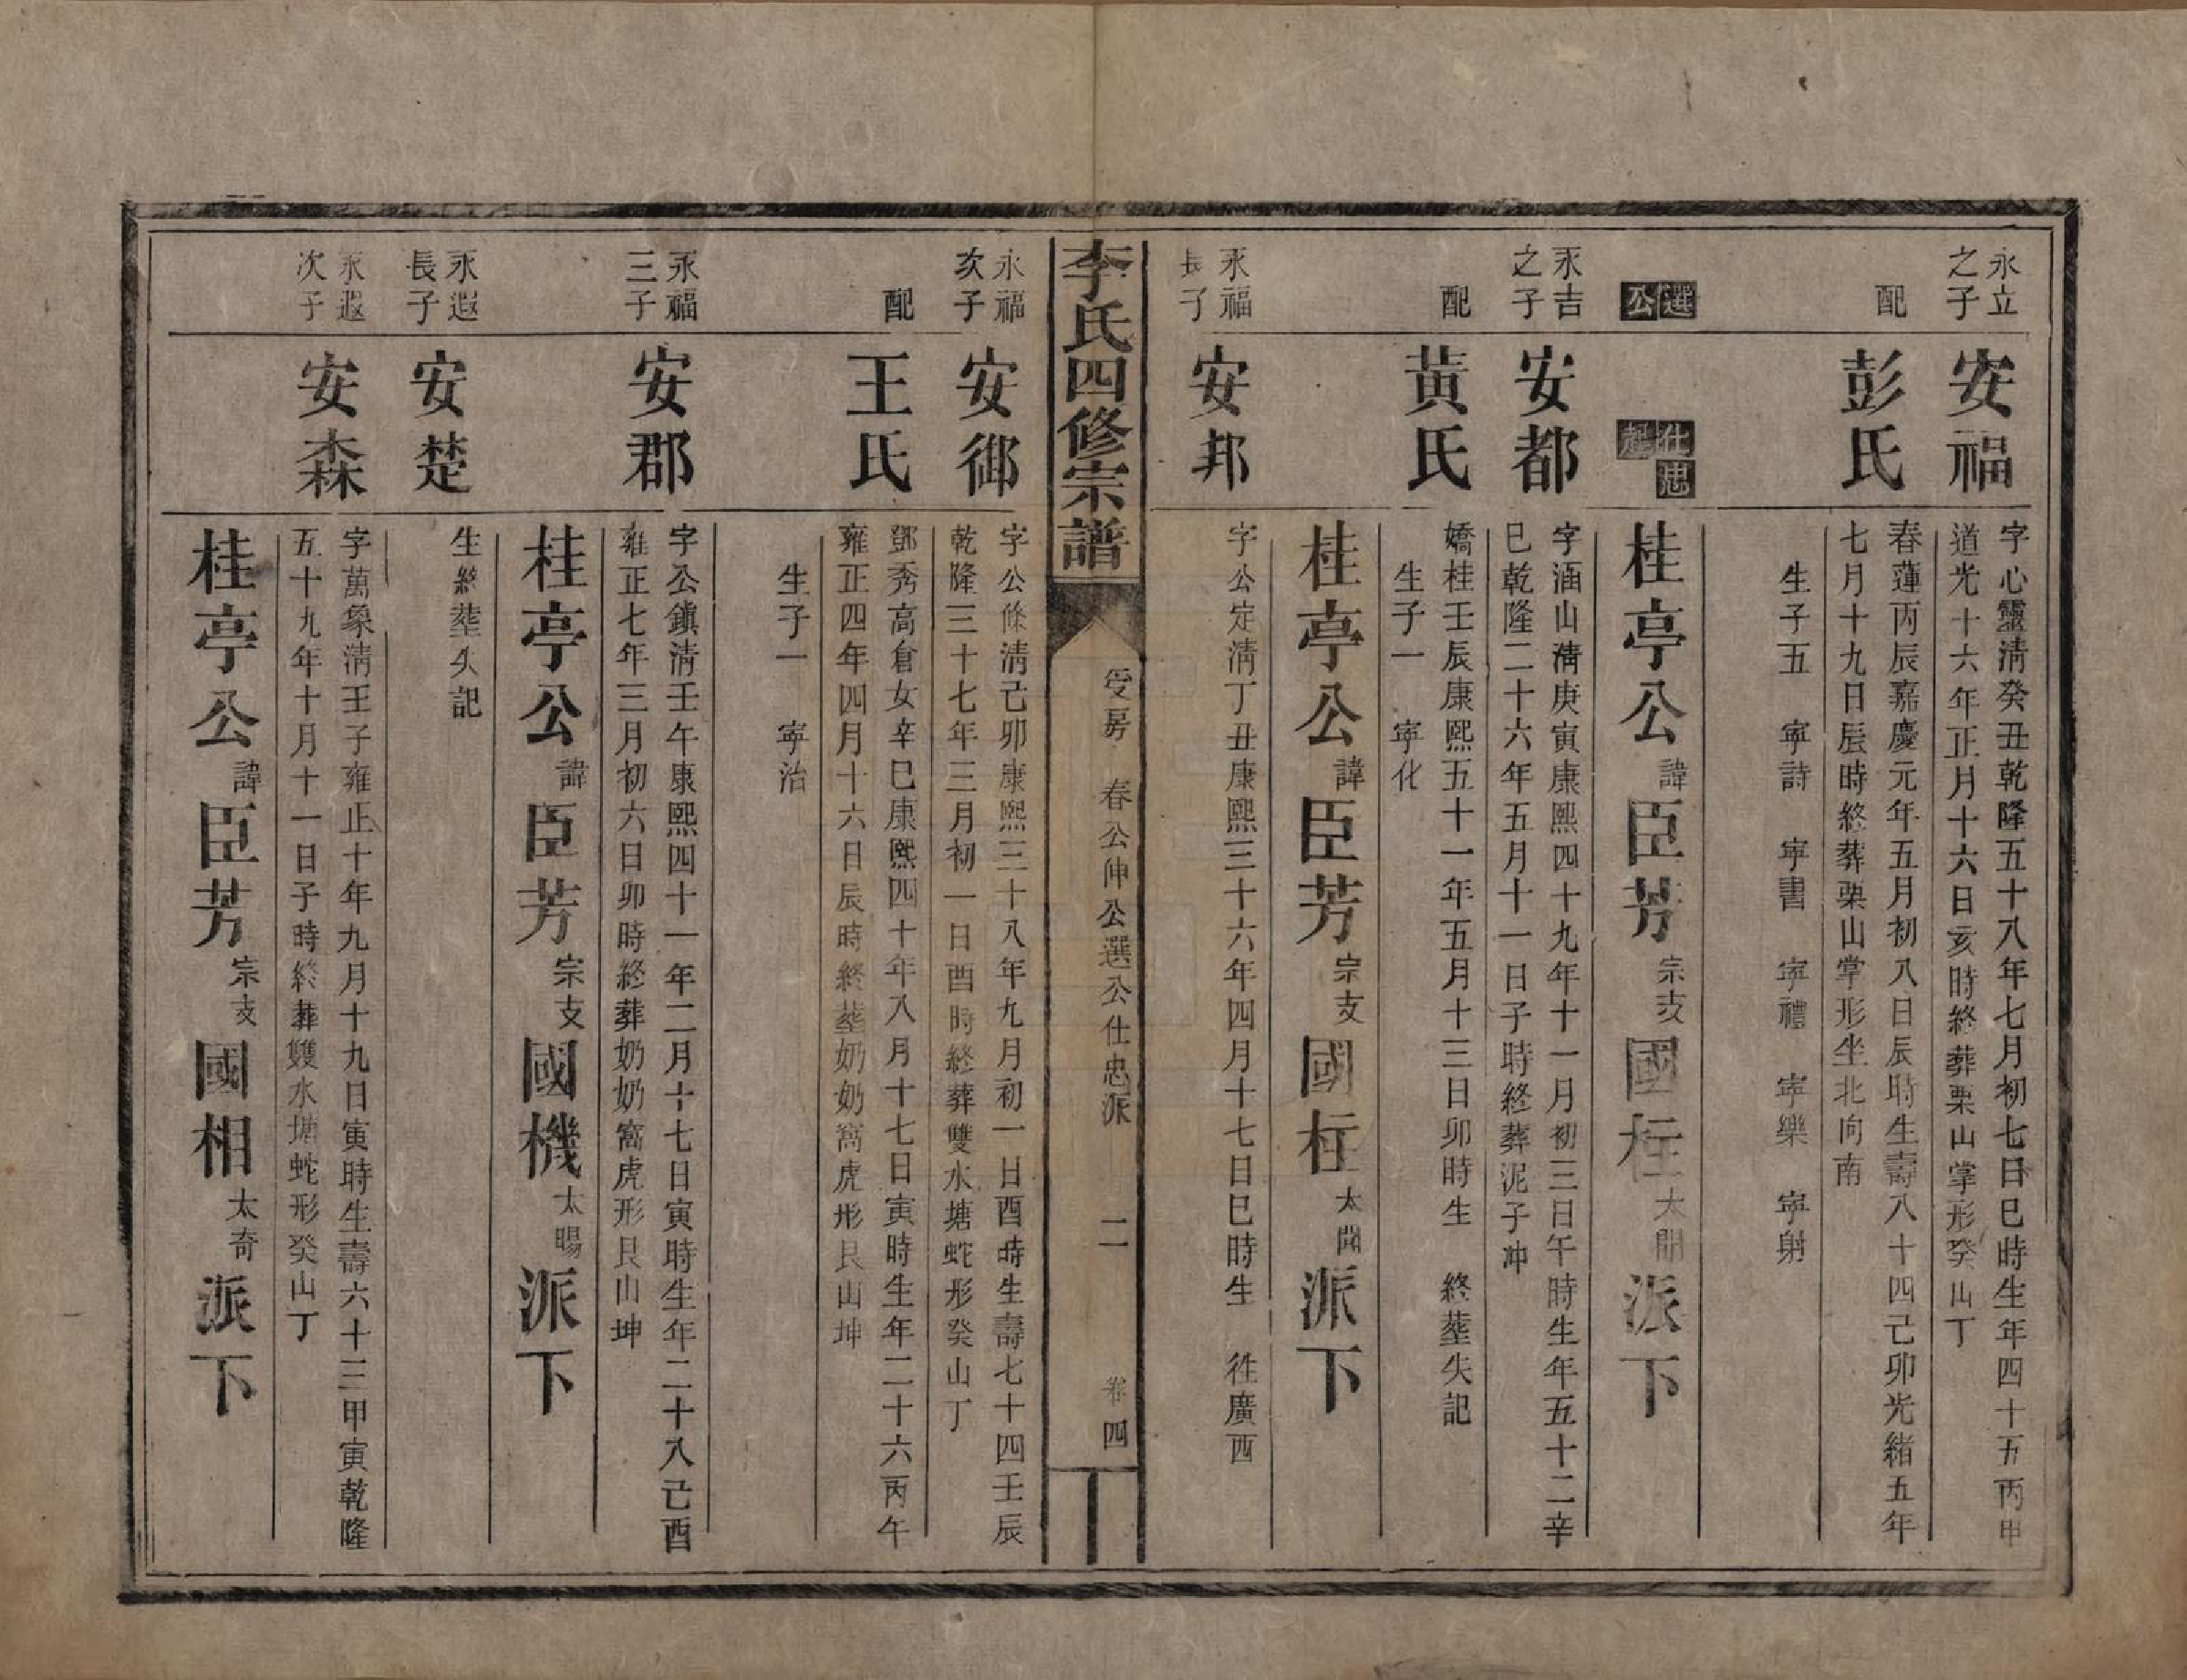 永立
之子
安福
字心靈清癸丑乾隆五十八年七月初七日巳時生年四十五丙申
道光十六年正月十六日亥時終葬栗山掌形癸山丁
配
彭氏
春蓮丙辰嘉慶元年五月初八日辰時生壽八十四己卯光緒五年
七月十九日辰時終葬栗山掌形坐北向南
生子五 寧詩 寧書 寧禮 寧樂 寧射
選
公
仕忠
起
桂亭公諱臣芳宗支國柱大開派下
永吉
之子
安都
字涵山清庚寅康熙四十九年十一月初三日午時生年五十二辛
巳乾隆二十六年五月十一日子時終葬泥子冲
配
黃氏
嬌桂壬辰康熙五十一年五月十三日卯時生 終塟失記
生子一 寧化
桂亭公諱臣芳宗支國柱太開派下
永福
長子
安邦
字公定清丁丑康熙三十六年四月十七日巳時生 徃廣西
李氏四修宗譜
受房 春公伸公選公仕忠派
二
卷四
永福
次子
安御
字公條清己卯康熙三十八年九月初一日酉時生壽七十四壬辰
乾隆三十七年三月初一日酉時終葬雙水塘蛇形癸山丁
配
王氏
鄧秀高倉女辛巳康熙四十年八月十七日寅時生年二十六丙午
雍正四年四月十六日辰時終塟奶奶窩虎形艮山坤
生子一 寧治
永福
三子
安郡
字公鎮清壬午康熙四十一年二月十七日寅時生年二十八己酉
雍正七年三月初六日卯時終葬奶奶窩虎形艮山坤
桂亭公諱臣芳宗支國機太暘派下
永遐
長子
安楚
生終塟失記
永遐
次子
安森
字萬象清壬子雍正十年九月十九日寅時生壽六十三甲寅乾隆
五十九年十月十一日子時終葬雙水塘蛇形癸山丁
桂亭公諱臣芳宗支國相太奇派下